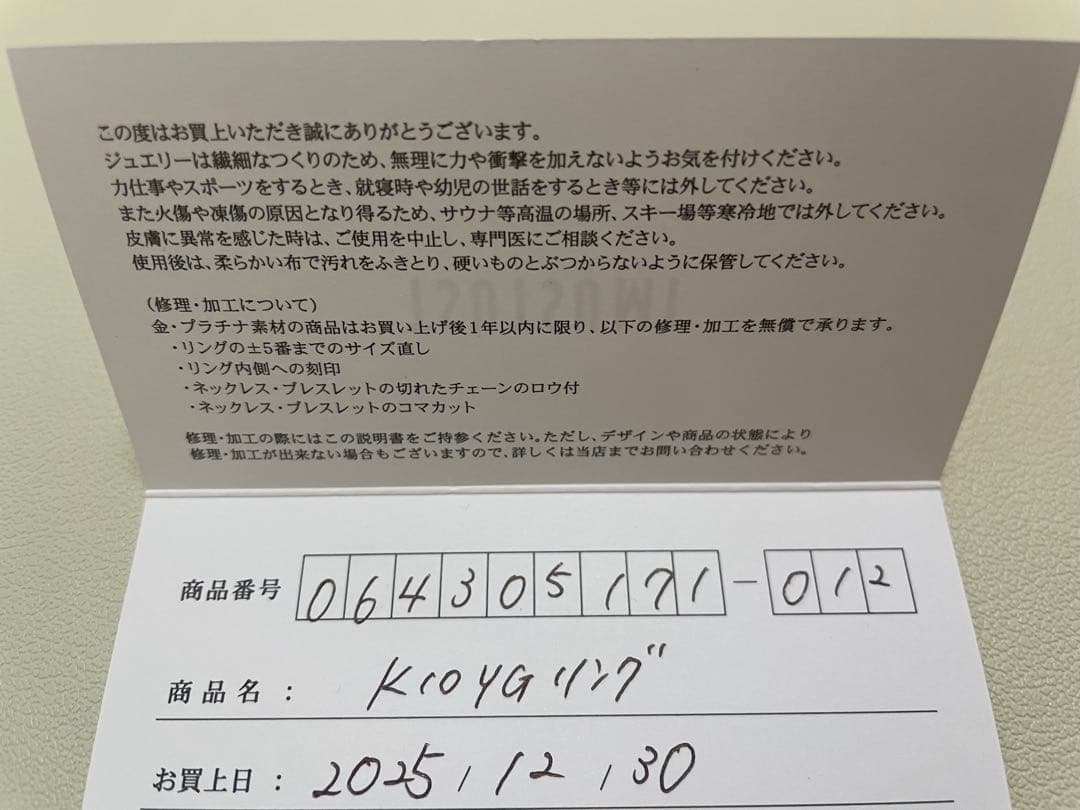 この度はお買上いただき誠にありがとうございます。
ジュエリーは繊細なつくりのため、無理に力や衝撃を加えないようお気を付けください。
力仕事やスポーツをするとき、就寝時や幼児の世話をするとき等には外してください。
また火傷や凍傷の原因となり得るため、サウナ等高温の場所、スキー場等寒冷地では外してください。
皮膚に異常を感じた時は、ご使用を中止し、専門医にご相談ください。
使用後は、柔らかい布で汚れをふきとり、硬いものとぶつからないように保管してください。
(修理・加工について)
金・プラチナ素材の商品はお買い上げ後1年以内に限り、以下の修理・加工を無償で承ります。
・リングの±5番までのサイズ直し
・リング内側への刻印
・ネックレス・ブレスレットの切れたチェーンのロウ付
・ネックレス・ブレスレットのコマカット
修理・加工の際にはこの説明書をご持参ください。ただし、デザインや商品の状態により
修理・加工が出来ない場合もございますので、詳しくは当店までお問い合わせください。
商品番号 064305171-012
商品名: K10YGリング
お買上日: 2025,12,30